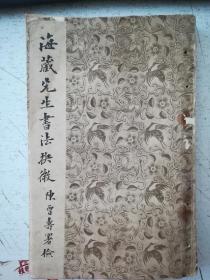 海藏先生書法抉微 陳曾壽署檢